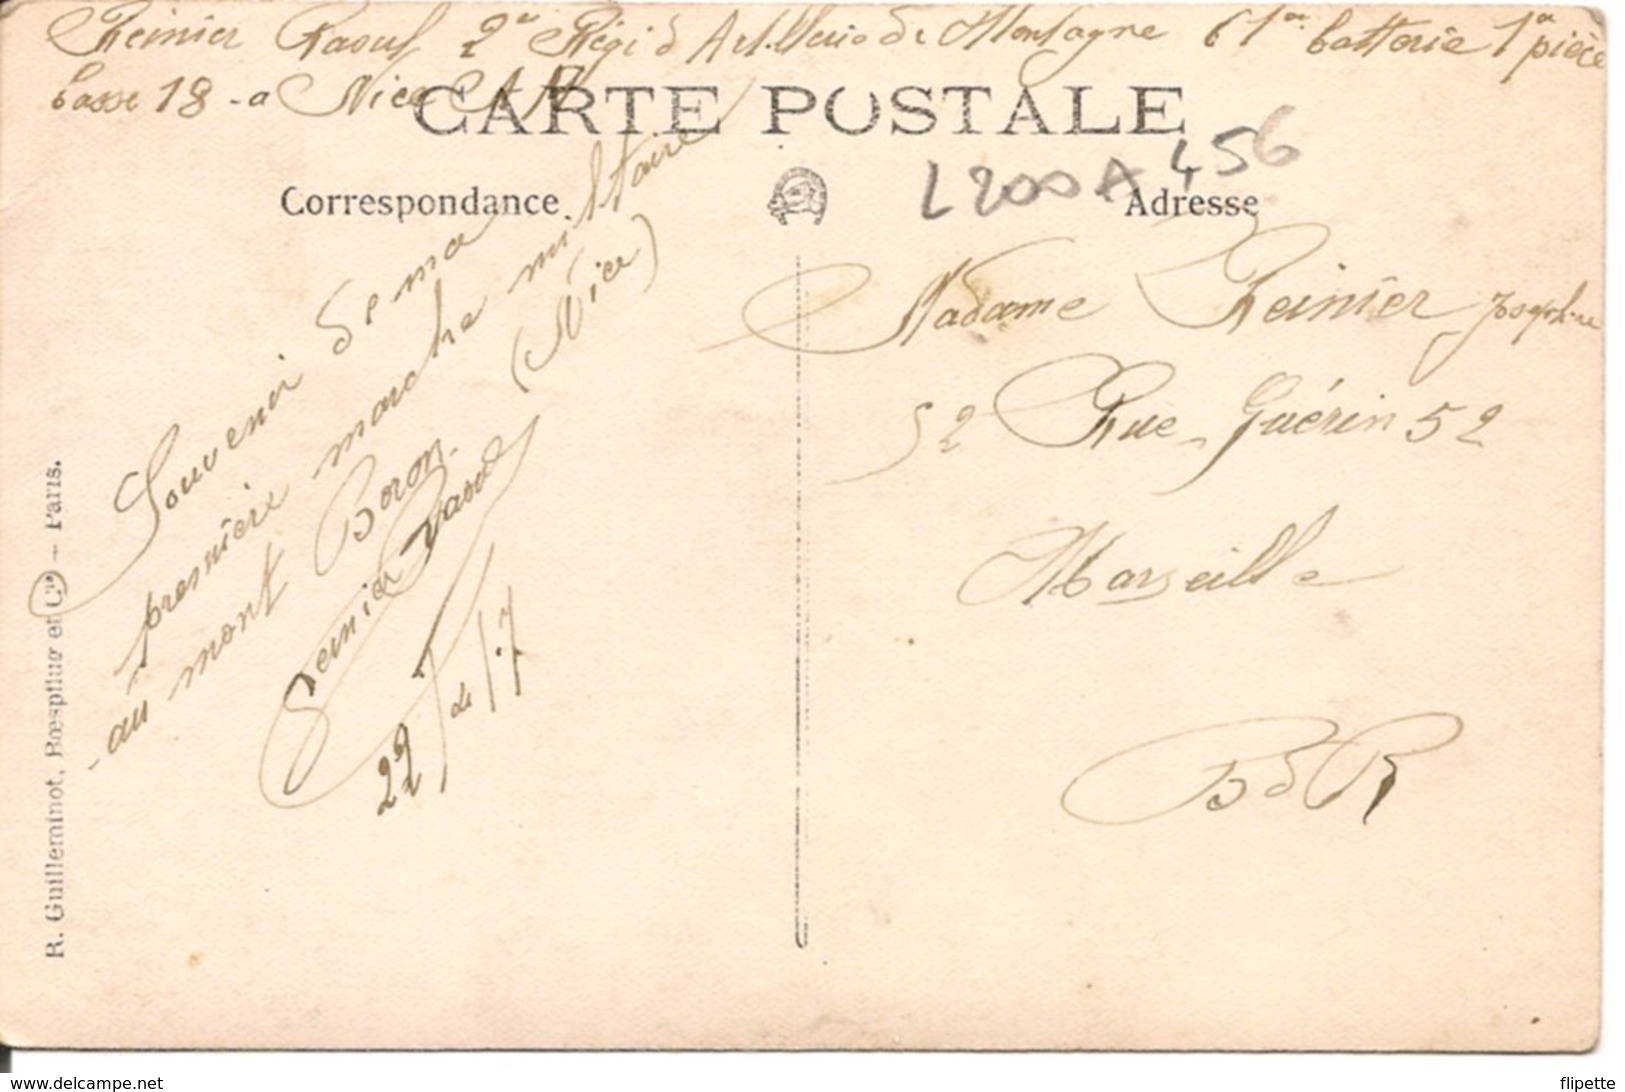 Reinier Raoul 2e Régi d Artillerie de Montagne 61me batterie 1re pièce
basse 18 - a Nice A M
CARTE POSTALE
Correspondance
L200A 456
Adresse
Souvenir de ma
première marche militaire
au mont Boron. (Nice)
Reinier Raoul
22 de 17
Madame Reinier Josephine
52 Rue Guérin 52
Marseille
B d R
R. Guilleminot, Bœspflug et Cie – Paris.
www.delcampe.net
flipette